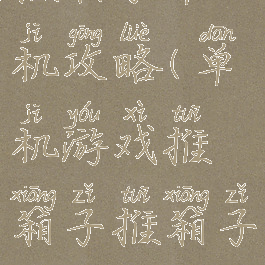 jī gōng lüè dān
机攻略(单
jī yóu xì tuī
机游戏推
xiōng zǐ tuī xiōng zǐ
箱子推箱子